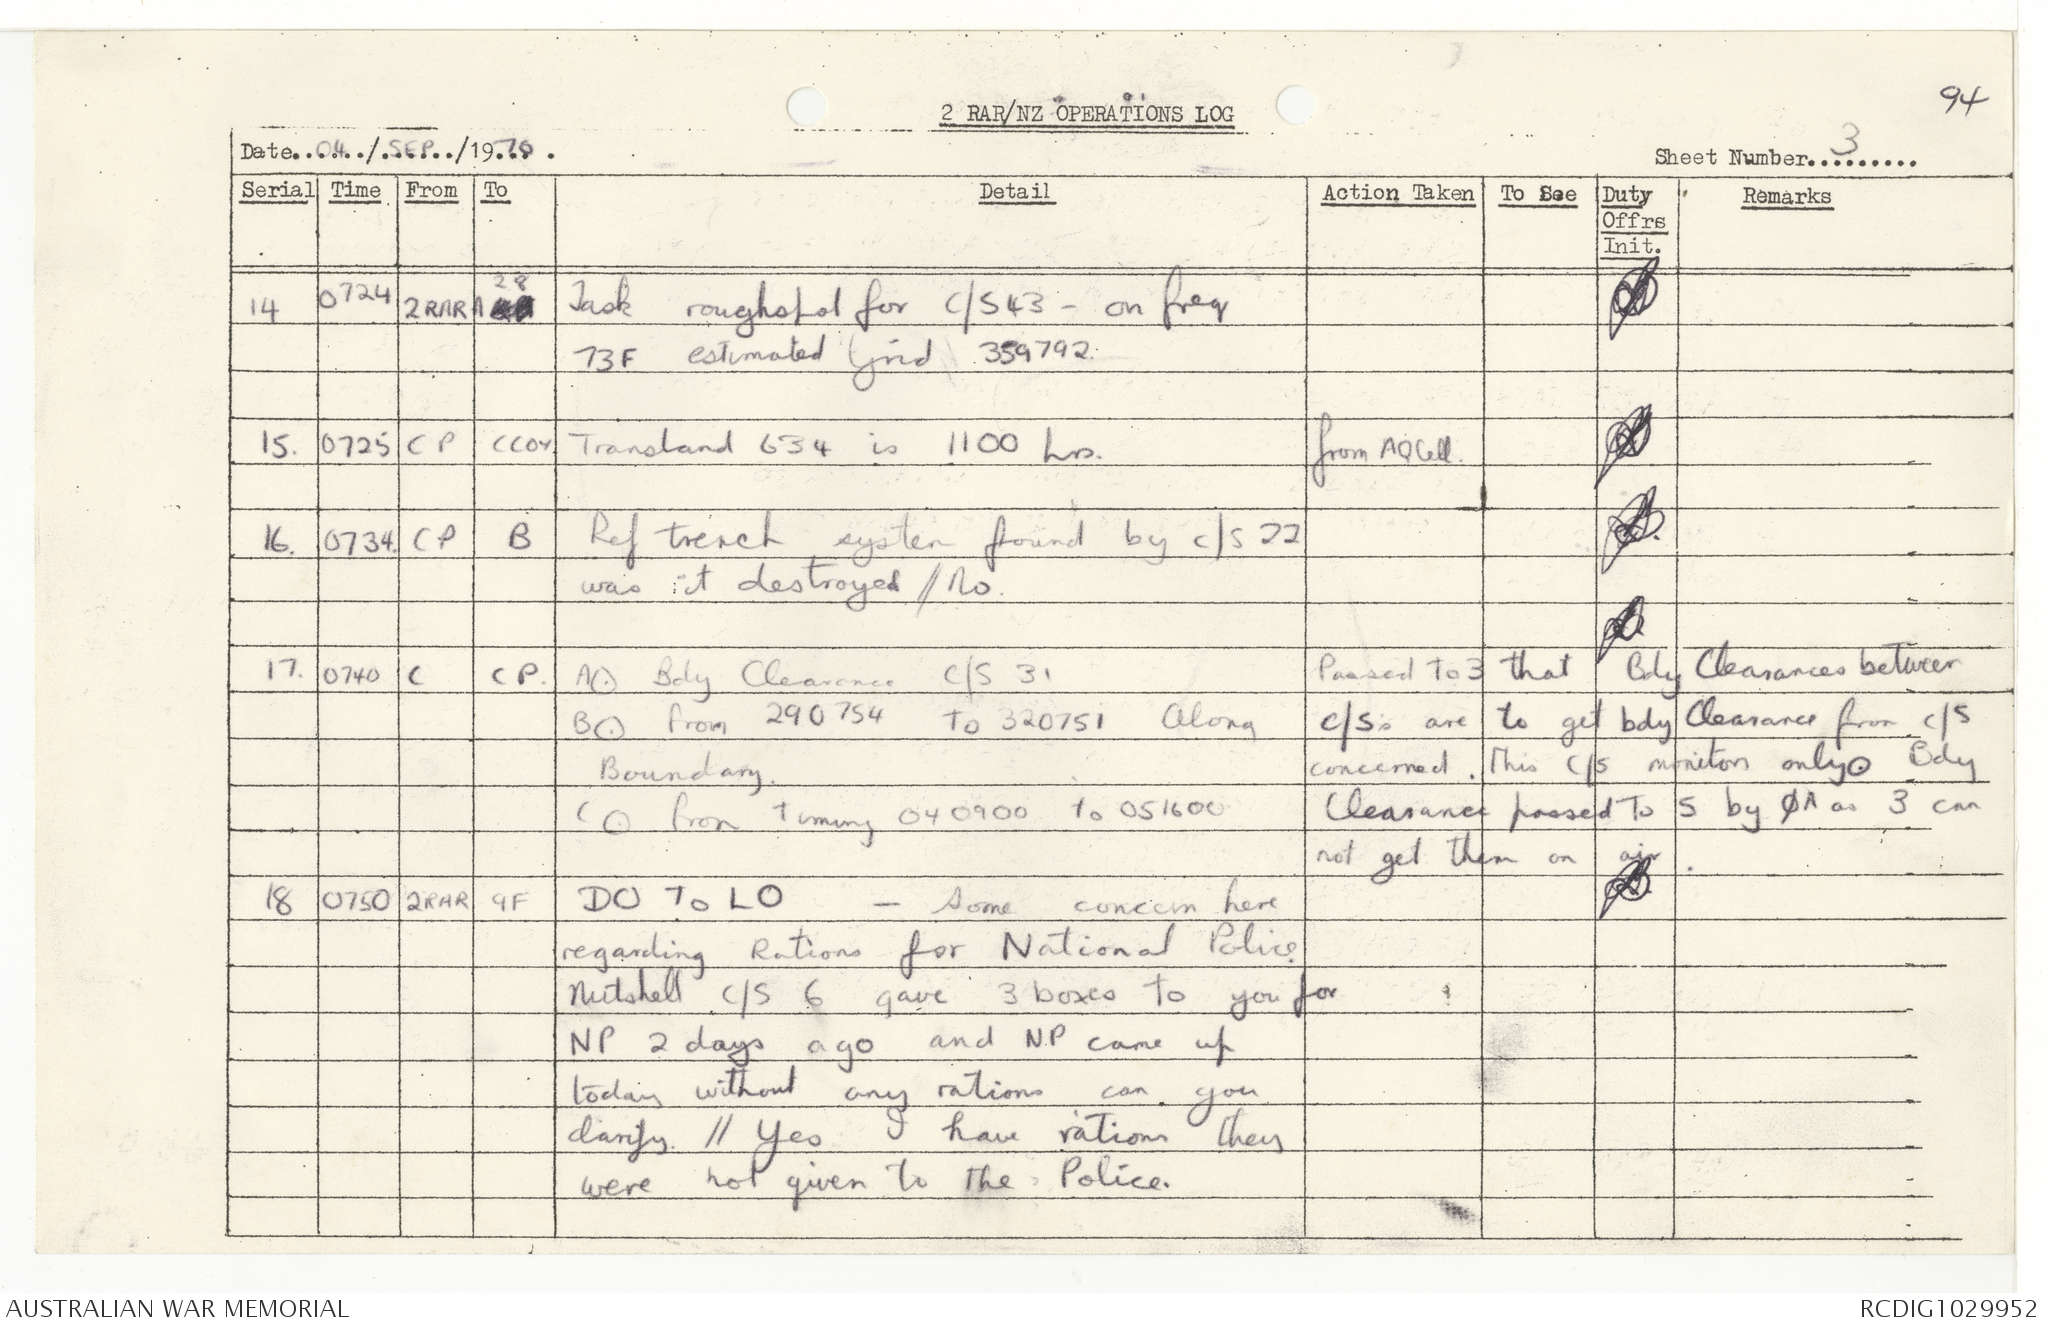 94
2 RAR/NZ OPERATIONS LOG
Date..04../.SEP../1970.
Sheet Number...3......
Serial Time From To Detail Action Taken To See Duty Offrs Init. Remarks
14 0724 2RAR 28 Task for C/S43 - on freq
73F estimated Grid 359792.
15. 0725 CP CCOY 634 is 1100 hrs. from AQ Cell.
16. 0734. CP B Ref trench system found by c/s 22
was it destroyed // No.
17. 0740 C CP. A(.) Bdy Clearance C/S 31 Passed to 3 that Bdy Clearances between
B(.) from 290754 to 320751 Along c/s's are to get bdy Clearance from c/s
Boundary. concerned. This c/s monitors only. Bdy
C(.) from timing 040900 to 051600 Clearance passed to 5 by ØA as 3 can
not get them on air.
18 0750 2RAR 9F DO To LO - Some concern here
regarding Rations for National Police.
Nutshell c/s 6 gave 3 boxes to you for
NP 2 days ago and NP came up
today without any rations can you
clarify. // Yes I have rations they
were not given to the Police.
AUSTRALIAN WAR MEMORIAL
RCDIG1029952